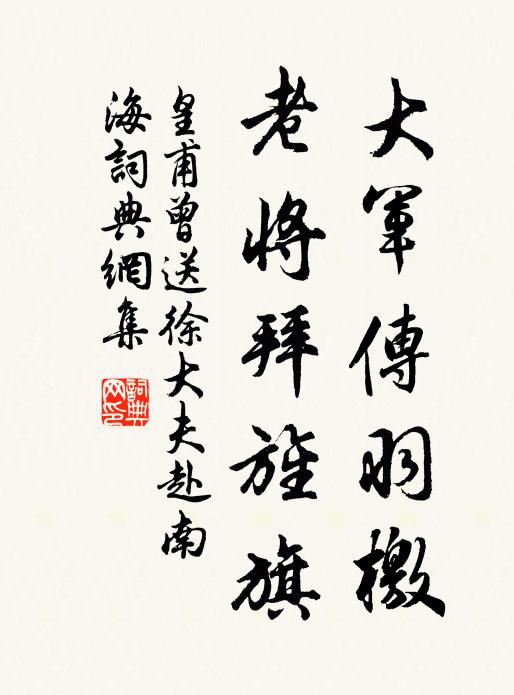 大軍傳羽檄
老將拜旌旗
皇甫曾送徐大夫赴南
海詞典網集
詞典
网印